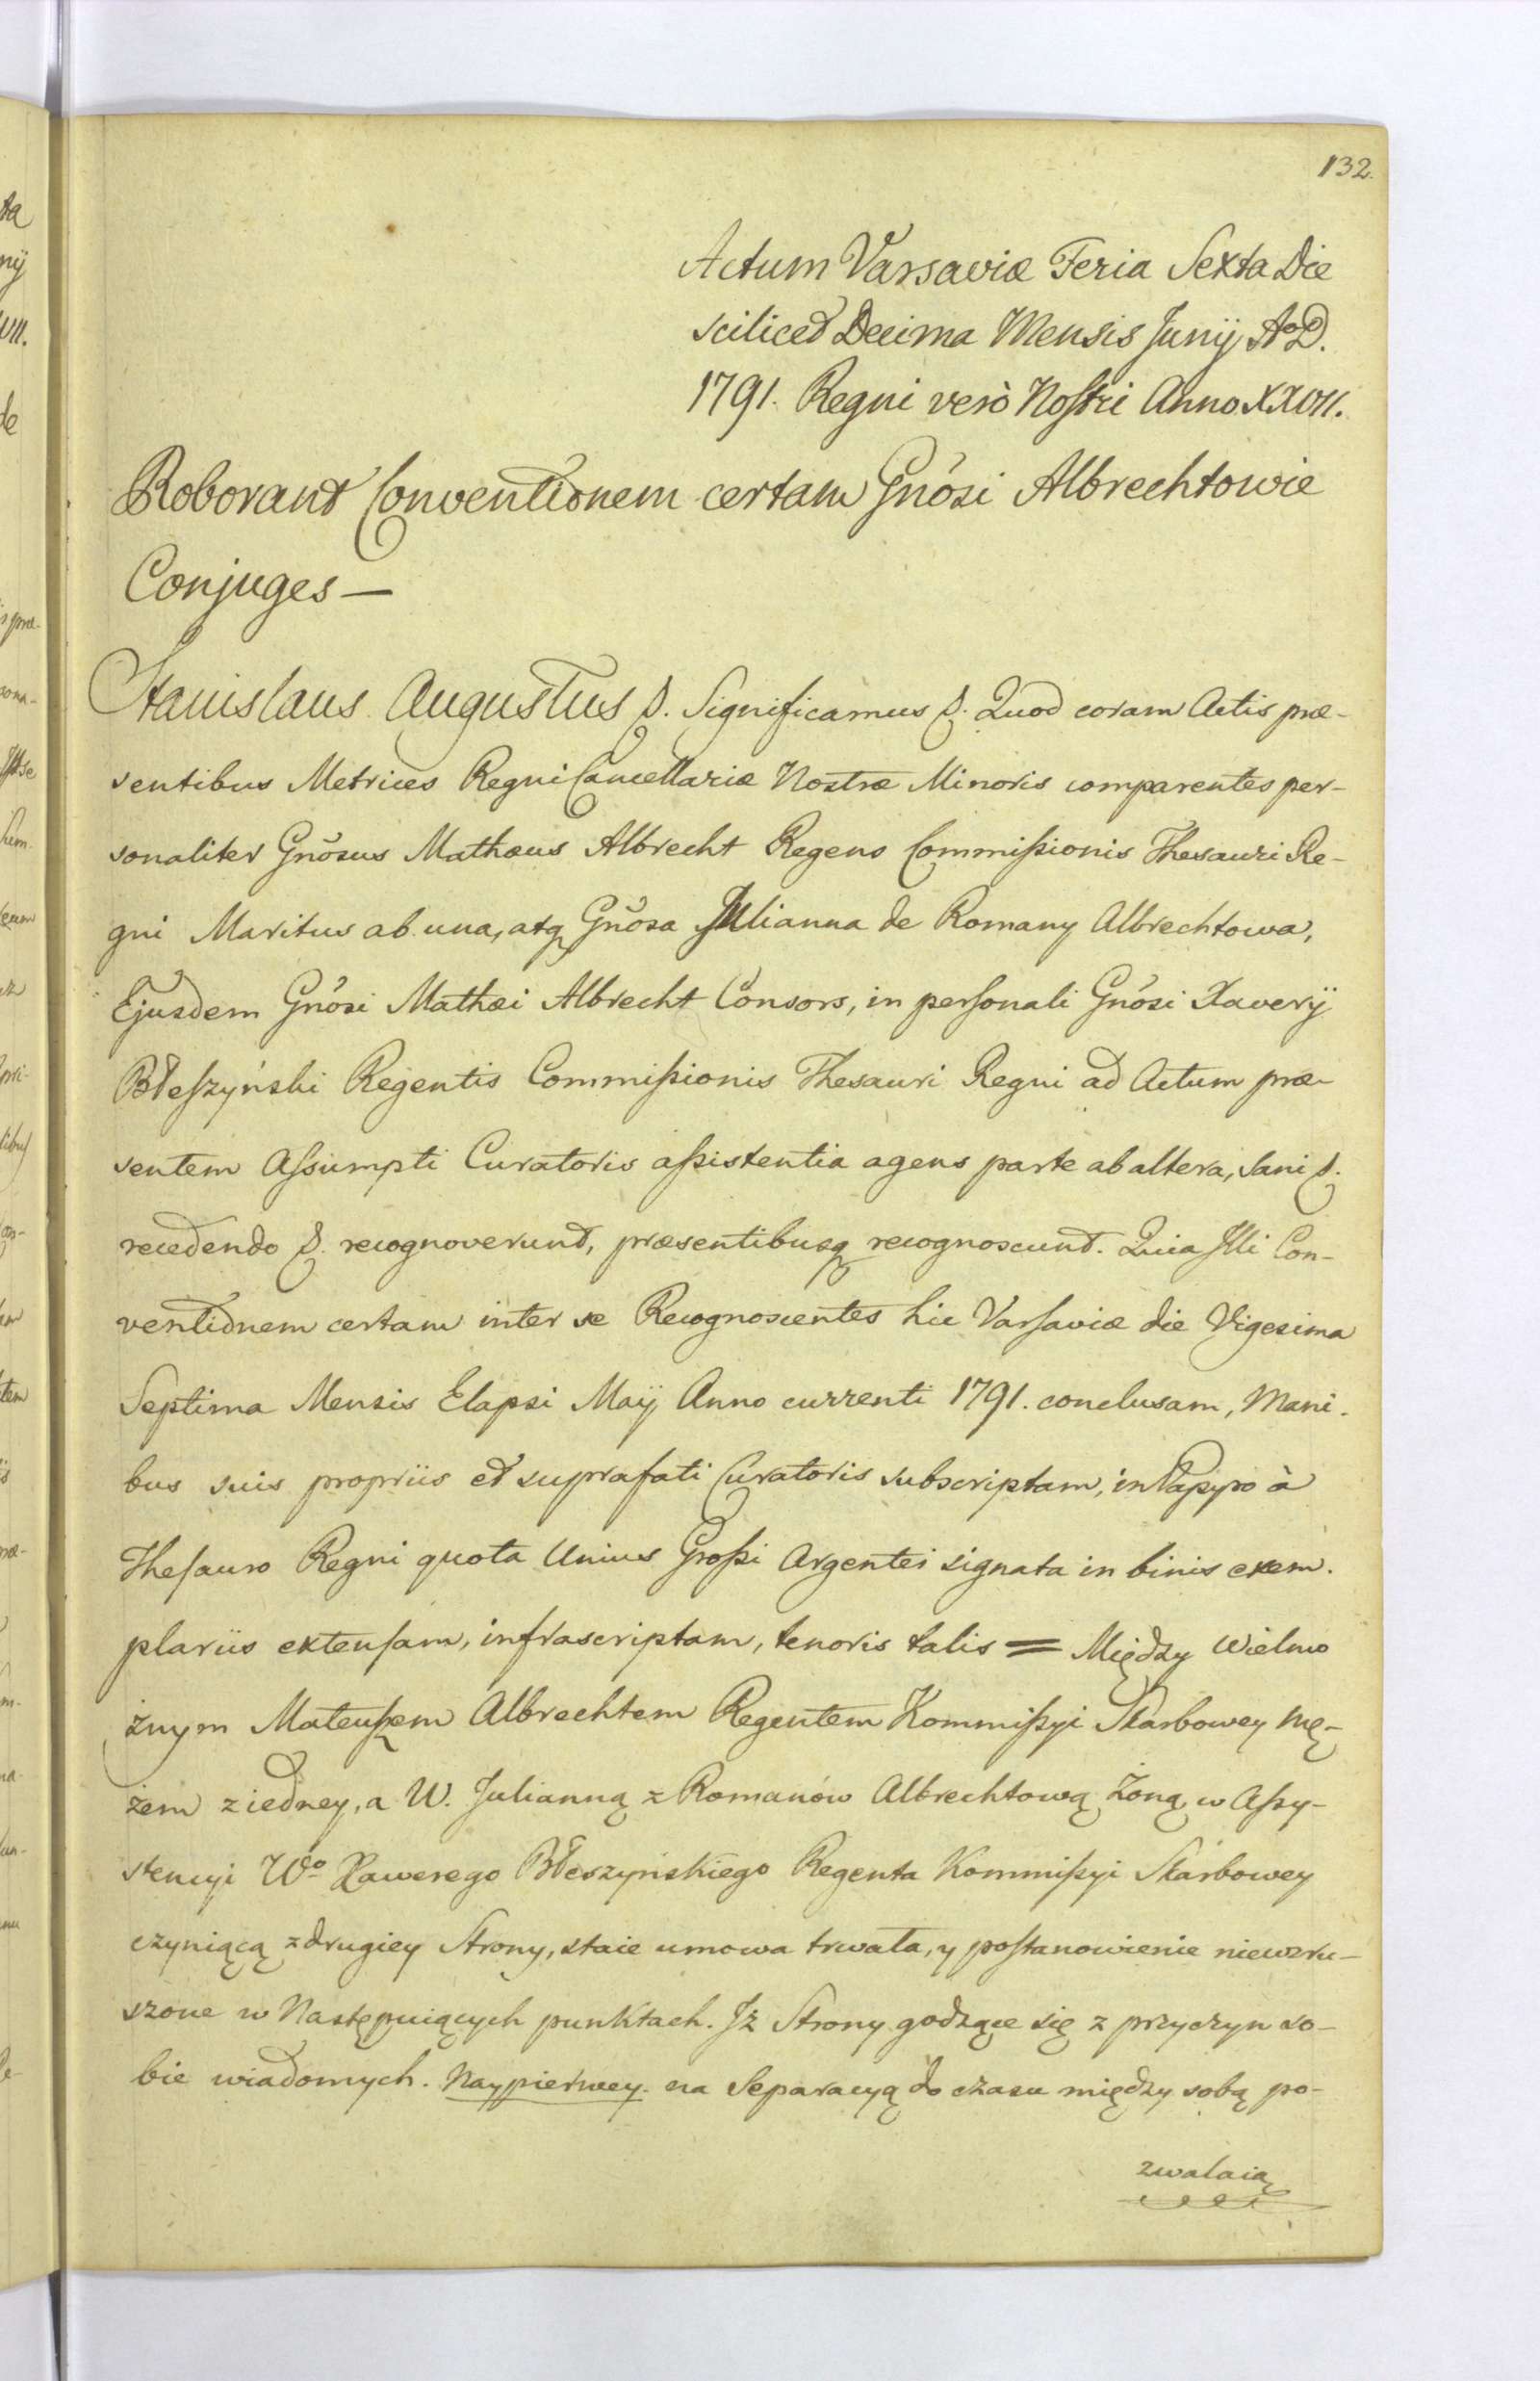 132.
Actum Varsaviæ Feria Sexta Die
scilicet Decima Mensis Junij AoD.
1791. Regni verò Nostri Anno XXVII.
Roborant Conventionem certam Gnõsi Albrechtowie
Conjuges —
Stanislaus Augustus &. Significamus &. Quod coram Actis præ-
sentibus Metrices Regni Cancellariæ Nostræ Minoris comparentes per-
sonaliter Gnõsus Mathæus Albrecht Regens Commissionis Thesauri Re-
gni Maritus ab una, atq Gnõsa Julianna de Romany Albrechtowa,
Ejusdem Gnõsi Mathæi Albrecht Consors, in personali Gnõsi Xaverij
Błeszyński Regentis Commissionis Thesauri Regni ad Actum præ-
sentem Assumpti Curatoris assistentia agens parte ab altera, Sani &.
recedendo &. recognoverunt, præsentibusq recognoscunt. Quia Illi Con-
ventionem certam inter se Recognoscentes hic Varsaviæ die Vigesima
Septima Mensis Elapsi Maij Anno currenti 1791. conclusam, Mani-
bus suis propriis et suprafati Curatoris subscriptam, in Papyro à
Thesauro Regni quota Unius Grossi Argentei signata in binis exem-
plariis extensam, infrascriptam, tenoris talis = Między Wielmo
żnym Mateuszem Albrechtem Regentem Kommissyi Skarbowey Mę-
żem z iedney, a W. Julianną z Romanów Albrechtową Żoną w Assy-
stencyi Wo Xawerego Błeszyńskiego Regenta Kommissyi Skarbowey
czyniącą z drugiey Strony, staie umowa trwała, y postanowienie niewzru-
szone w Następuiących punktach. Iż Strony godzące się z przyczyn so-
bie wiadomych. Naypierwey. na Separacyą do czasu między sobą po-
zwalaią